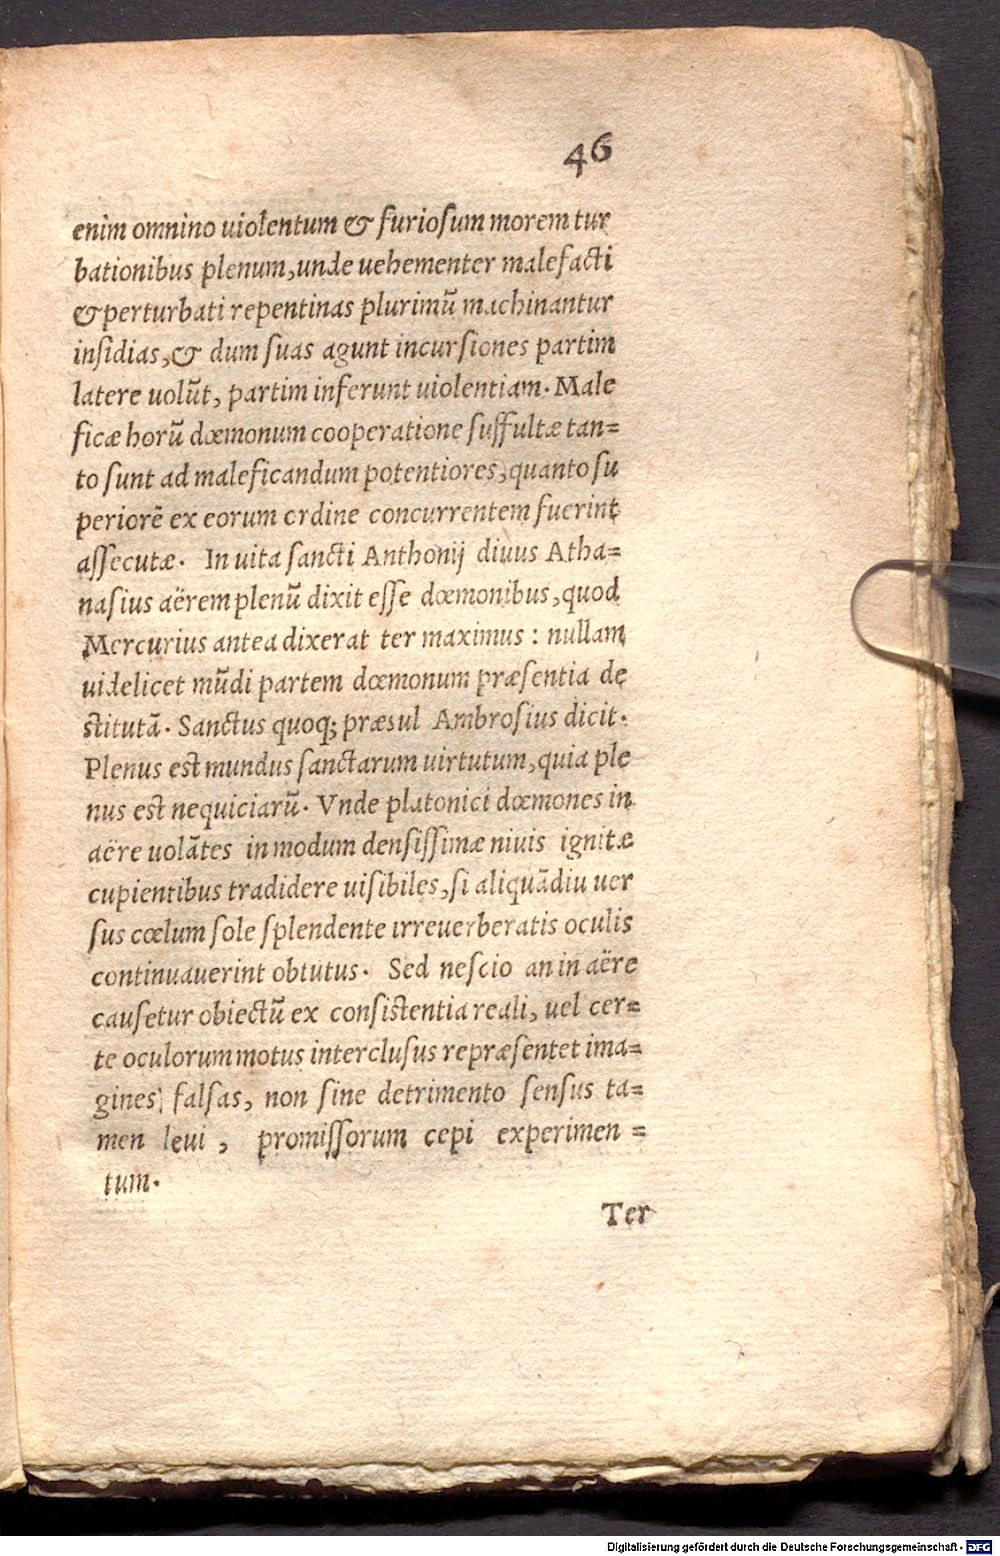 46
enim omnino uiolentum & furiosum morem tur
bationibus plenum, unde uehementer malefacti
& perturbati repentinas plurimũ machinantur
insidias, & dum suas agunt incursiones partim
latere uolũt, partim inferunt uiolentiam. Male
ficæ horũ dœmonum cooperatione suffultæ tan=
to sunt ad maleficandum potentiores, quanto su
periorẽ ex eorum ordine concurrentem fuerint
assecutæ. In uita sancti Anthonij diuus Atha=
nasius aërem plenũ dixit esse dœmonibus, quod
Mercurius antea dixerat ter maximus : nullam
uidelicet mũdi partem dœmonum præsentia de
stitutã. Sanctus quoq; præsul Ambrosius dicit.
Plenus est mundus sanctarum uirtutum, quia ple
nus est nequiciarũ. Vnde platonici dœmones in
aëre uolãtes in modum densissimæ niuis ignitæ
cupientibus tradidere uisibiles, si aliquãdiu uer
sus cœlum sole splendente irreuerberatis oculis
continuauerint obtutus. Sed nescio an in aëre
causetur obiectũ ex consistentia reali, uel cer=
te oculorum motus interclusus repræsentet ima=
gines falsas, non sine detrimento sensus ta=
men leui, promissorum cepi experimen=
tum.
Ter
Digitalisierung gefördert durch die Deutsche Forschungsgemeinschaft - DFG